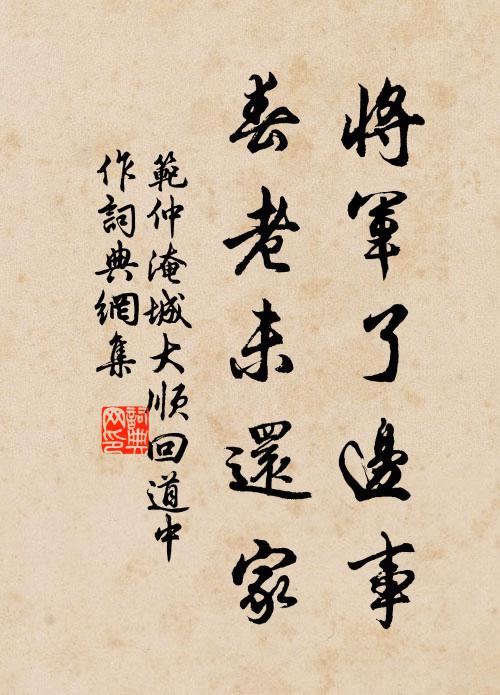 將軍了邊事
春老未還家
範仲淹城大順回道中
作詞典網集
詞典
网印